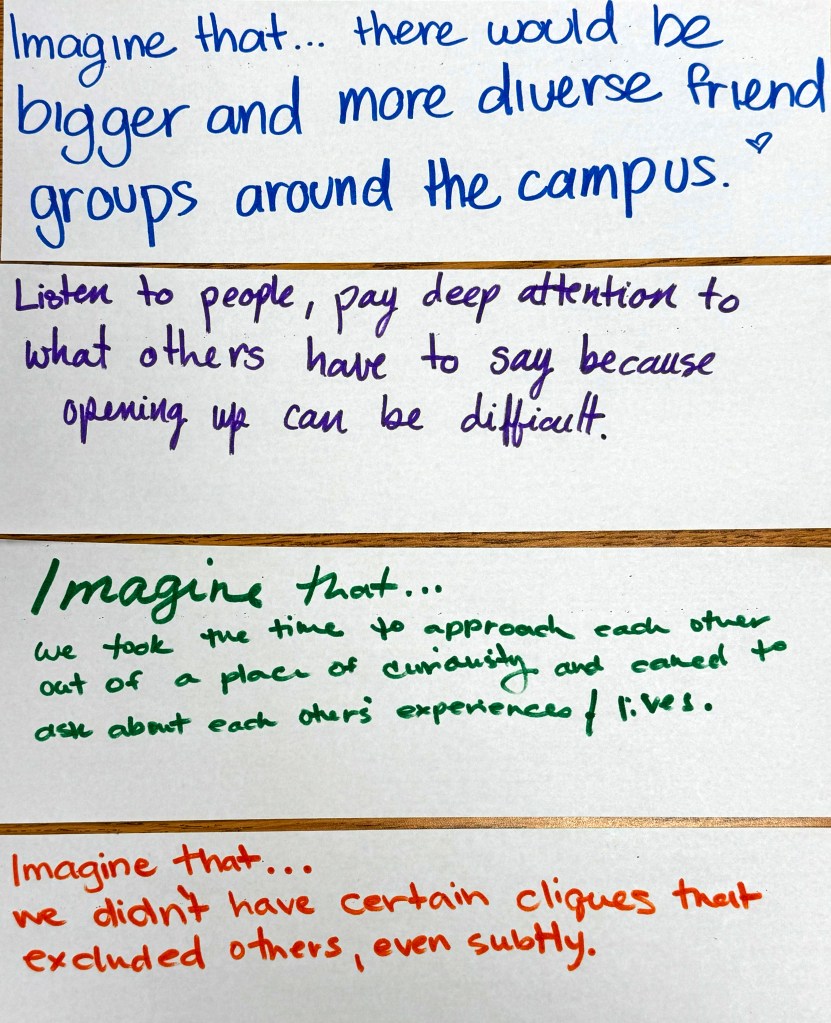 Imagine that... there would be
bigger and more diverse friend
groups around the campus.
Listen to people, pay deep attention to
what others have to say because
opening up can be difficult.
Imagine that...
we took the time to approach each other
out of a place of curiousity and cared to
ask about each others' experiences / lives.
Imagine that...
we didn't have certain cliques that
excluded others, even subtly.